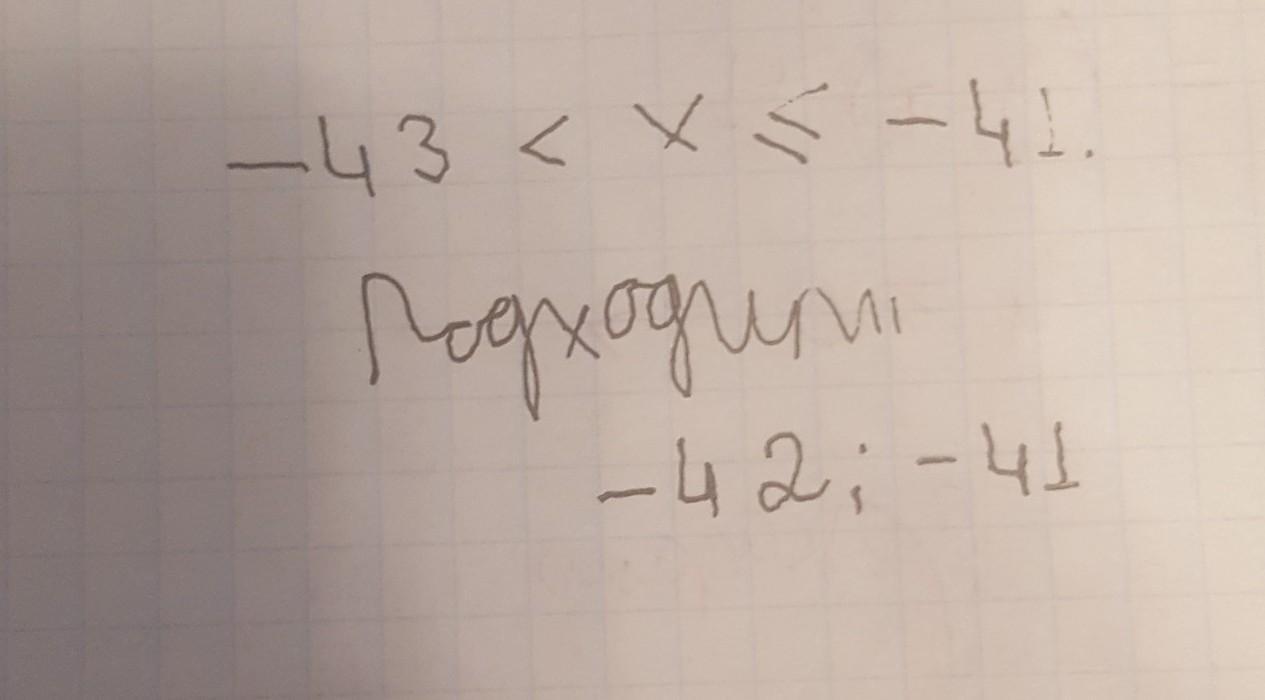 -43 < x ⩽ -41.
Подходит
-42; -41